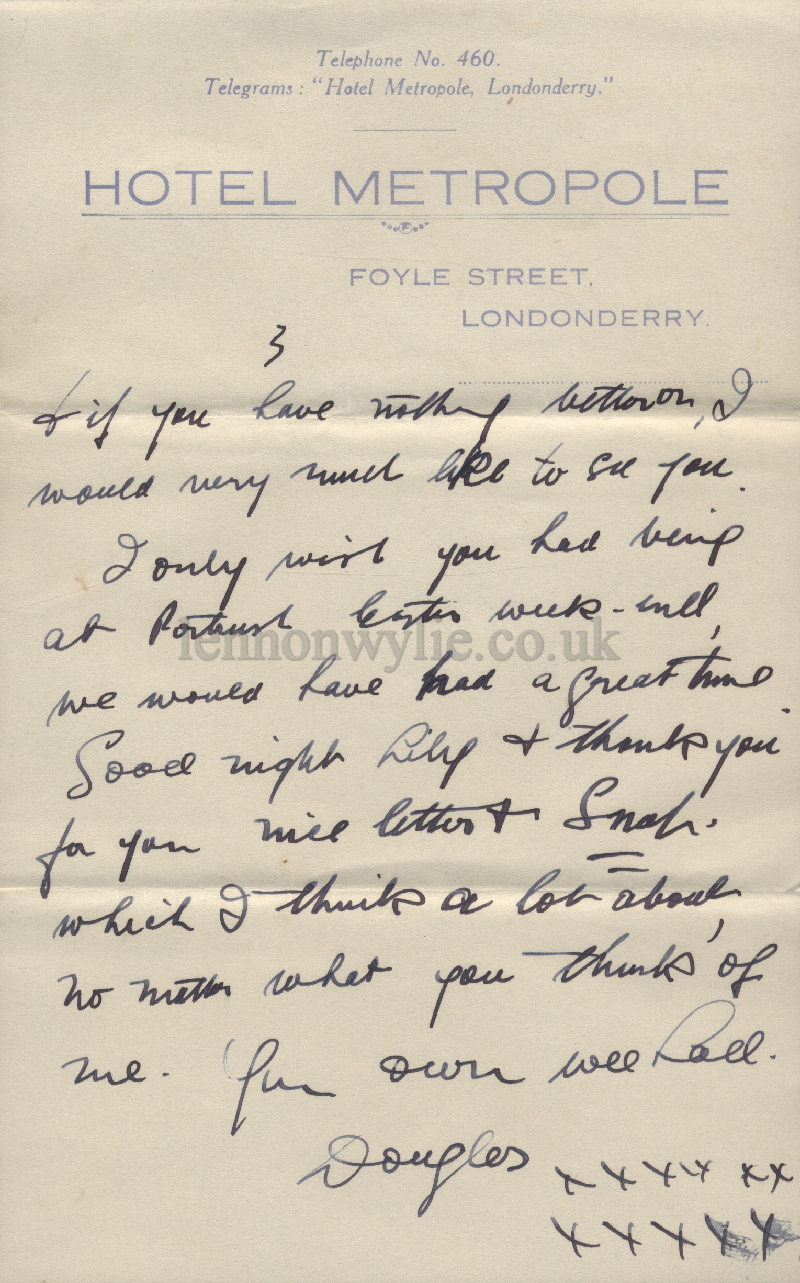 Telephone No. 460.
Telegrams: "Hotel Metropole, Londonderry."
HOTEL METROPOLE
FOYLE STREET,
LONDONDERRY.
3
& if you have nothing better on, I
would very much like to see you.
I only wish you had being
at Portrush Easter week-end,
lennonwylie.co.uk
we would have had a great time.
Good night Lily & thank you
for your nice letter & Snap.
which I think a lot about,
no matter what you think of
me. Your own wee Lad.
Douglas xxxx xx
xxxxx